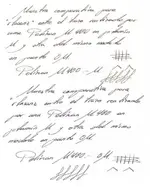 Muestra comparativa para
observar entre el trazo realizado
por una Pelikan M400 en
plumín M y otra del mismo
modelo en punto 3M.
Pelikan M400 - M
Muestra comparativa para
observar entre el trazo realizado
por una Pelikan M400 en
plumín M y otra del mismo
modelo en punto 3M.
Pelikan M400 - 3M